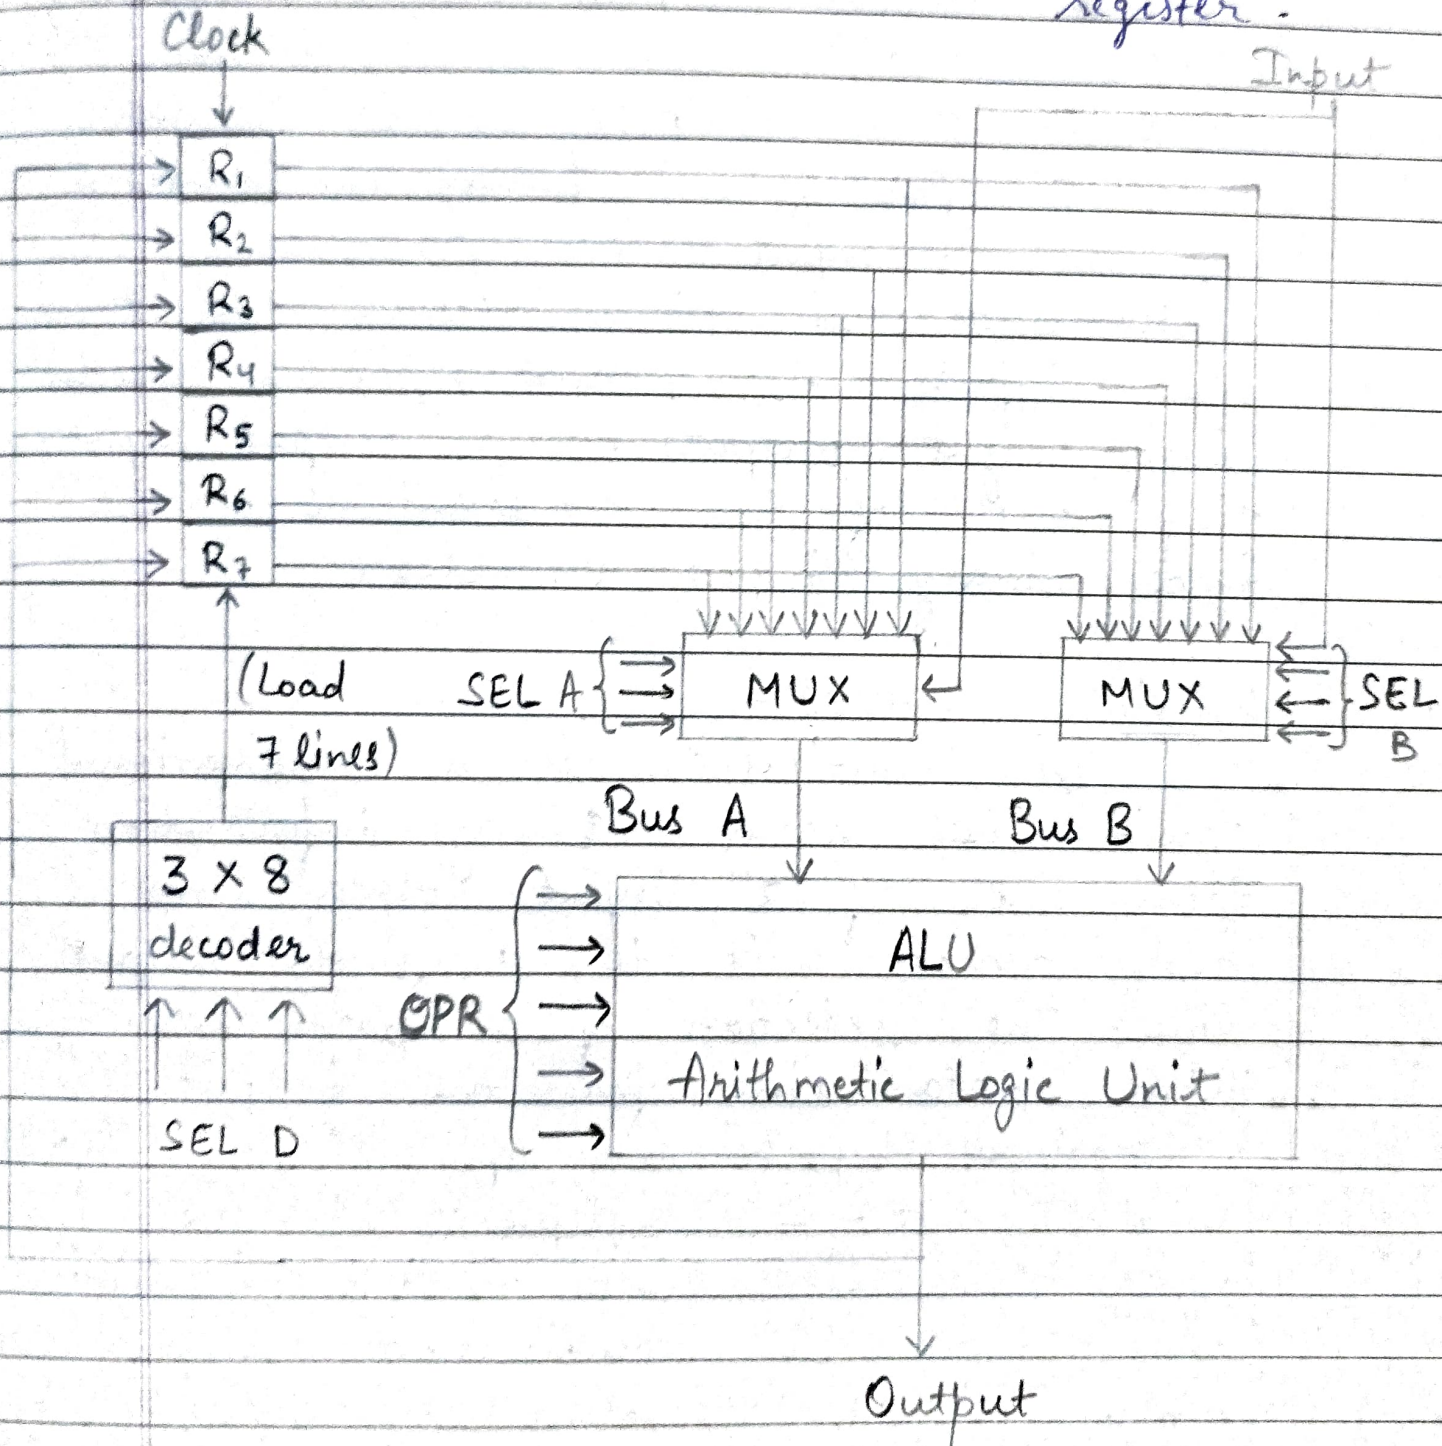 register.
Clock
Input
R1
R2
R3
R4
R5
R6
R7
(Load
7 lines)
SEL A
MUX
MUX
SEL
B
Bus A
Bus B
3 X 8
decoder
OPR
ALU
Arithmetic Logic Unit
SEL D
Output